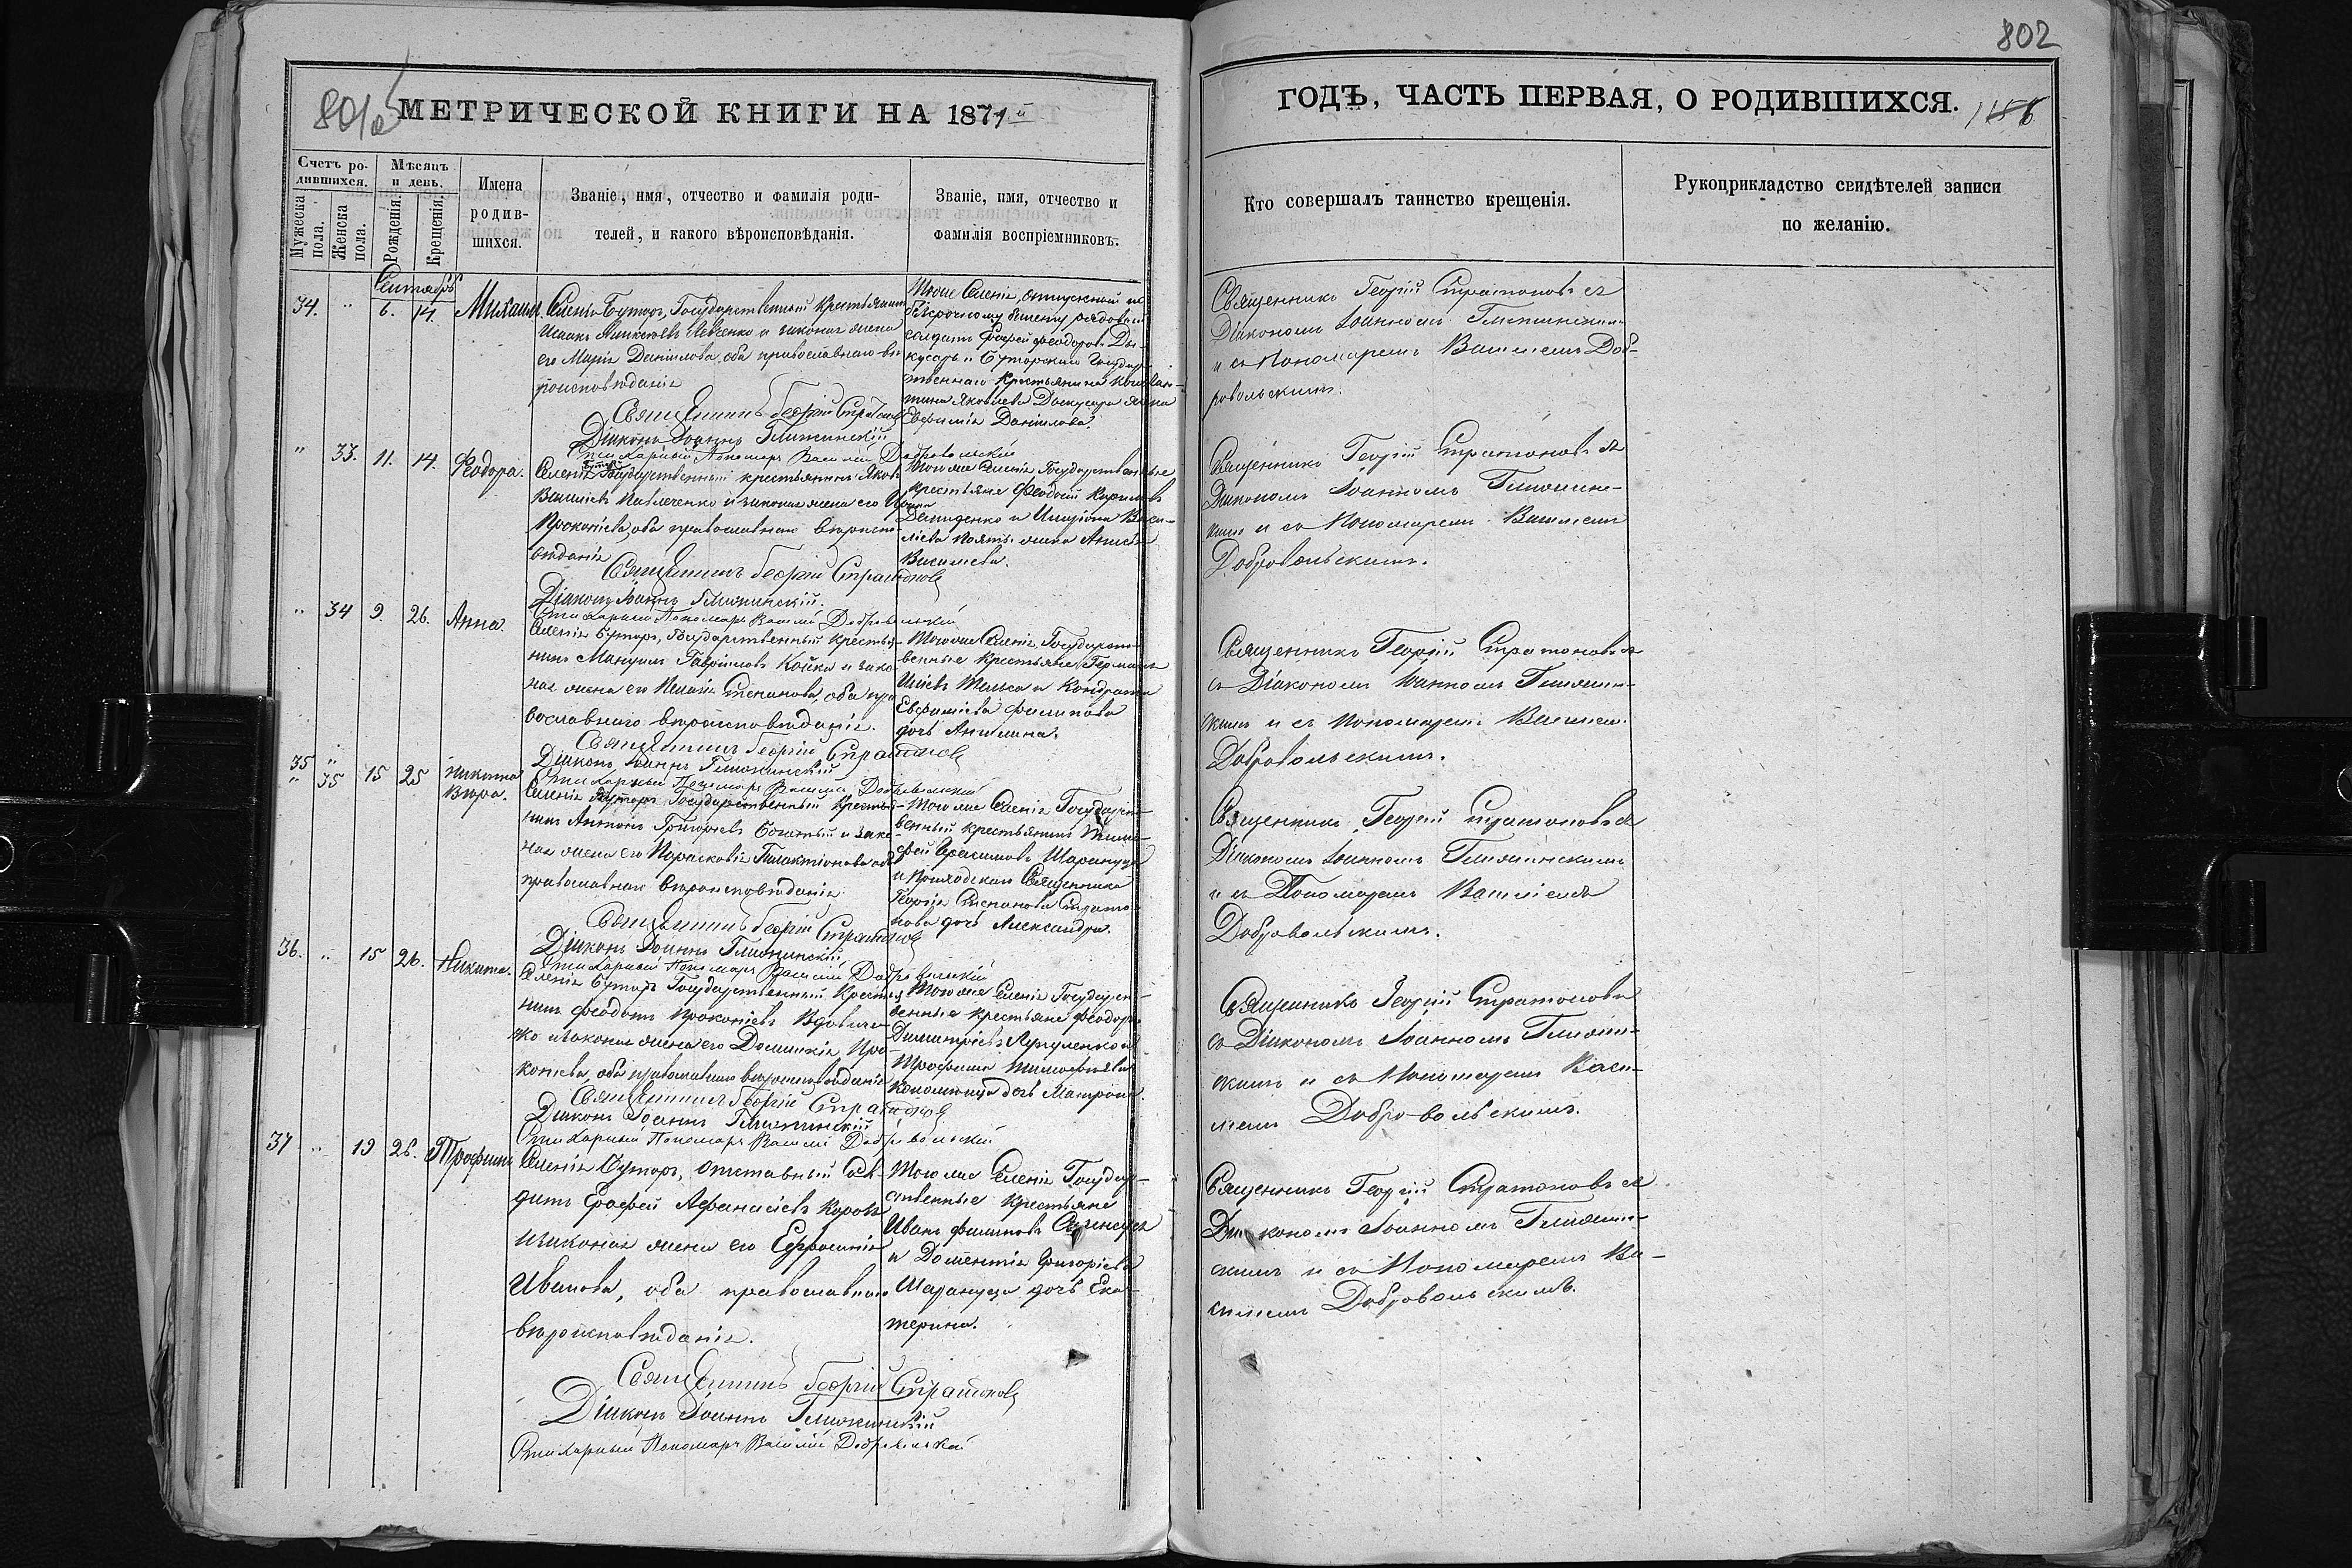 801 об
МЕТРИЧЕСКОЙ КНИГИ НА 1871й
Счетъ ро-
дившихся.
Мѣсяцъ
и день.
Мужеска
пола.
Женска
пола.
Рожденія.
Крещенія.
Имена
родив-
шихся.
Званіе, имя, отчество и фамилія роди-
телей, и какого вѣроисповѣданія.
Званіе, имя, отчество и
фамилія воспріемниковъ.
Сентябрь
34. " 6. 14. Михаилъ
Селенія Буторъ, Государственный Крестьянинъ
Исаакъ Левченко и законная жена
его Марія Данилова, оба православнаго вѣ-
роисповѣданія
Священникъ Георгій Стратоновъ
Діаконъ Іоаннъ Глижинскій
Стихарный Пономарь Василій Добровольскій
Тогоже Селенія,
рядовый
солдатъ Ѳеодоровъ
и Буторскаго Государ-
ственнаго Крестьянина Констан-
тина Яковлева жена
Евфимія Данилова.
" 33. 11. 14. Ѳеодора.
Селенія Государственный крестьянинъ Яковъ
Василіевъ Павличенко и законная жена его
Прокопіева, оба православнаго вѣроиспо-
вѣданія
Священникъ Георгій Стратоновъ
Діаконъ Іоаннъ Глижинскій.
Стихарный Пономарь Василій Добровольскій
Тогоже Селенія Государственные
крестьяне Ѳеодосій Кириловъ
Демиденко и Иларіона Васи-
ліева жена Анисія
Василіева.
" 34 9. 26. Анна.
Селенія Буторъ, Государственный крестья-
нинъ Мануилъ Гавриловъ Койка и зако-
ная жена его Пелагія Степанова, оба пра-
вославнаго вѣроисповѣданія.
Священникъ Георгій Стратоновъ
Діаконъ Іоаннъ Глижинскій
Стихарный Пономарь Василій Добровольскій
Тогоже Селенія, Государст-
венные крестьяне Германъ
Иліевъ и Кондрата
Евфиміева Филипова
дочь Акилина.
35 "
" 35 15 25 Никита
Вѣра.
Селенія Буторъ Государственный Крестья-
нинъ Антонъ Григоріевъ Богатый и зако-
ная жена его Параскевія Галактіонова оба
православнаго вѣроисповѣданія
Священникъ Георгій Стратоновъ
Діаконъ Іоаннъ Глижинскій
Стихарный Пономарь Василій Добровольскій
Тогоже Селенія Государст-
венный крестьянинъ Тимо-
фей Герасимовъ Шарануца
и Приходскаго Священника
Георгія Степанова Страто-
нова дочь Александра.
36. " 15 26. Никита.
Селенія Буторъ Государственный Крестья-
нинъ Ѳеодотъ Прокопіевъ Вдовиче-
нко и законая жена его Домникія Про-
копіева, оба православнаго вѣроисповѣданія
Священникъ Георгій Стратоновъ
Діаконъ Іоаннъ Глижинскій
Стихарный Пономарь Василій Добровольскій
Тогоже Селенія Государст-
венные крестьяне Ѳеодоръ
Димитріевъ Лупуленко и
Трофима Тимофѣева
дочь Матрона.
37 " 19 26. Трофимъ
Селенія Буторъ, Отставный Сол-
датъ Ерофей Афанасіевъ
изаконая жена его Ефросинія
Иванова, оба православнаго
вѣроисповѣданія.
Священникъ Георгій Стратоновъ
Діаконъ Іоаннъ Глижинскій
Стихарный Пономарь Василій Добровольскій
Тогоже Селенія Государ-
ственные Крестьяне
Иванъ Филиповъ
и Доментія Григоріева
Шарануца дочь Ека-
терина.
802
ГОДЪ, ЧАСТЬ ПЕРВАЯ, О РОДИВШИХСЯ.
Кто совершалъ таинство крещенія.
Рукоприкладство свидѣтелей записи
по желанію.
Священникъ Георгій Стратоновъ съ
Діакономъ Іоанномъ Глижинскимъ
и съ Пономаремъ Василіемъ Доб-
ровольскимъ.
Священникъ Георгій Стратоновъ съ
Діакономъ Іоанномъ Глижинс-
кимъ и съ Пономаремъ Василіемъ
Добровольскимъ.
Священникъ Георгій Стратоновъ
съ Діакономъ Іоанномъ Глижин-
скимъ и съ Пономаремъ Василіемъ
Добровольскимъ.
Священникъ Георгій Стратоновъ съ
Діакономъ Іоанномъ Глижинскимъ
и съ Пономаремъ Василіемъ
Добровольскимъ.
Священникъ Георгій Стратоновъ
съ Діакономъ Іоанномъ Глижин-
скимъ и съ Пономаремъ Васи-
ліемъ Добро-вольскимъ.
Священникъ Георгій Стратоновъ съ
Діакономъ Іоанномъ Глижин-
скимъ и съ Пономаремъ Ва-
силіемъ Добровольскимъ.